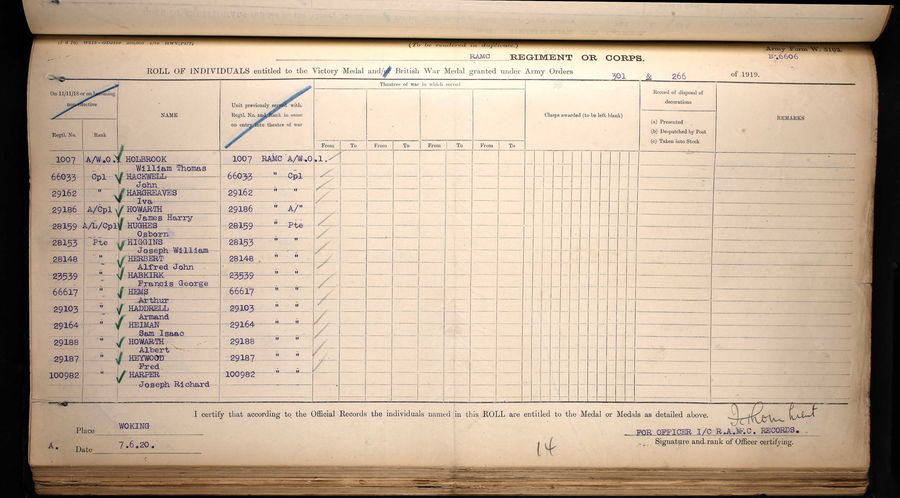 (To be rendered in duplicate.)
Army Form W. 5102.
RAMC REGIMENT OR CORPS.
B-6606
ROLL OF INDIVIDUALS entitled to the Victory Medal and/ British War Medal granted under Army Orders 301 & 266 of 1919.
On 11/11/18 or on becoming non-effective
NAME
Unit previously served with. Regtl. No. and Rank in same on entry into theatre of war
Theatres of war in which served
Clasps awarded (to be left blank)
Record of disposal of decorations
(a) Presented
(b) Despatched by Post
(c) Taken into Stock
REMARKS
Regtl. No. Rank
From To From To From To From To
1007 A/W.O.1 HOLBROOK 1007 RAMC A/W.O.1.
William Thomas
66033 Cpl HACKWELL 66033 " Cpl
John
29162 " HARGREAVES 29162 " "
Iva
29186 A/Cpl HOWARTH 29186 " A/"
James Harry
28159 A/L/Cpl HUGHES 28159 " Pte
Osborn
28153 Pte HIGGINS 28153 " "
Joseph William
28148 " HERBERT 28148 " "
Alfred John
23539 " HABKIRK 23539 " "
Francis George
66617 " HEMS 66617 " "
Arthur
29103 " HADDRELL 29103 " "
Armand
29164 " HEIMAN 29164 " "
Sam Isaac
29188 " HOWARTH 29188 " "
Albert
29187 " HEYWOOD 29187 " "
Fred
100982 " HARPER 100982 " "
Joseph Richard
I certify that according to the Official Records the individuals named in this ROLL are entitled to the Medal or Medals as detailed above.
Place WOKING
FOR OFFICER I/C R.A.M.C. RECORDS.
Signature and rank of Officer certifying.
A. Date 7.6.20.
14